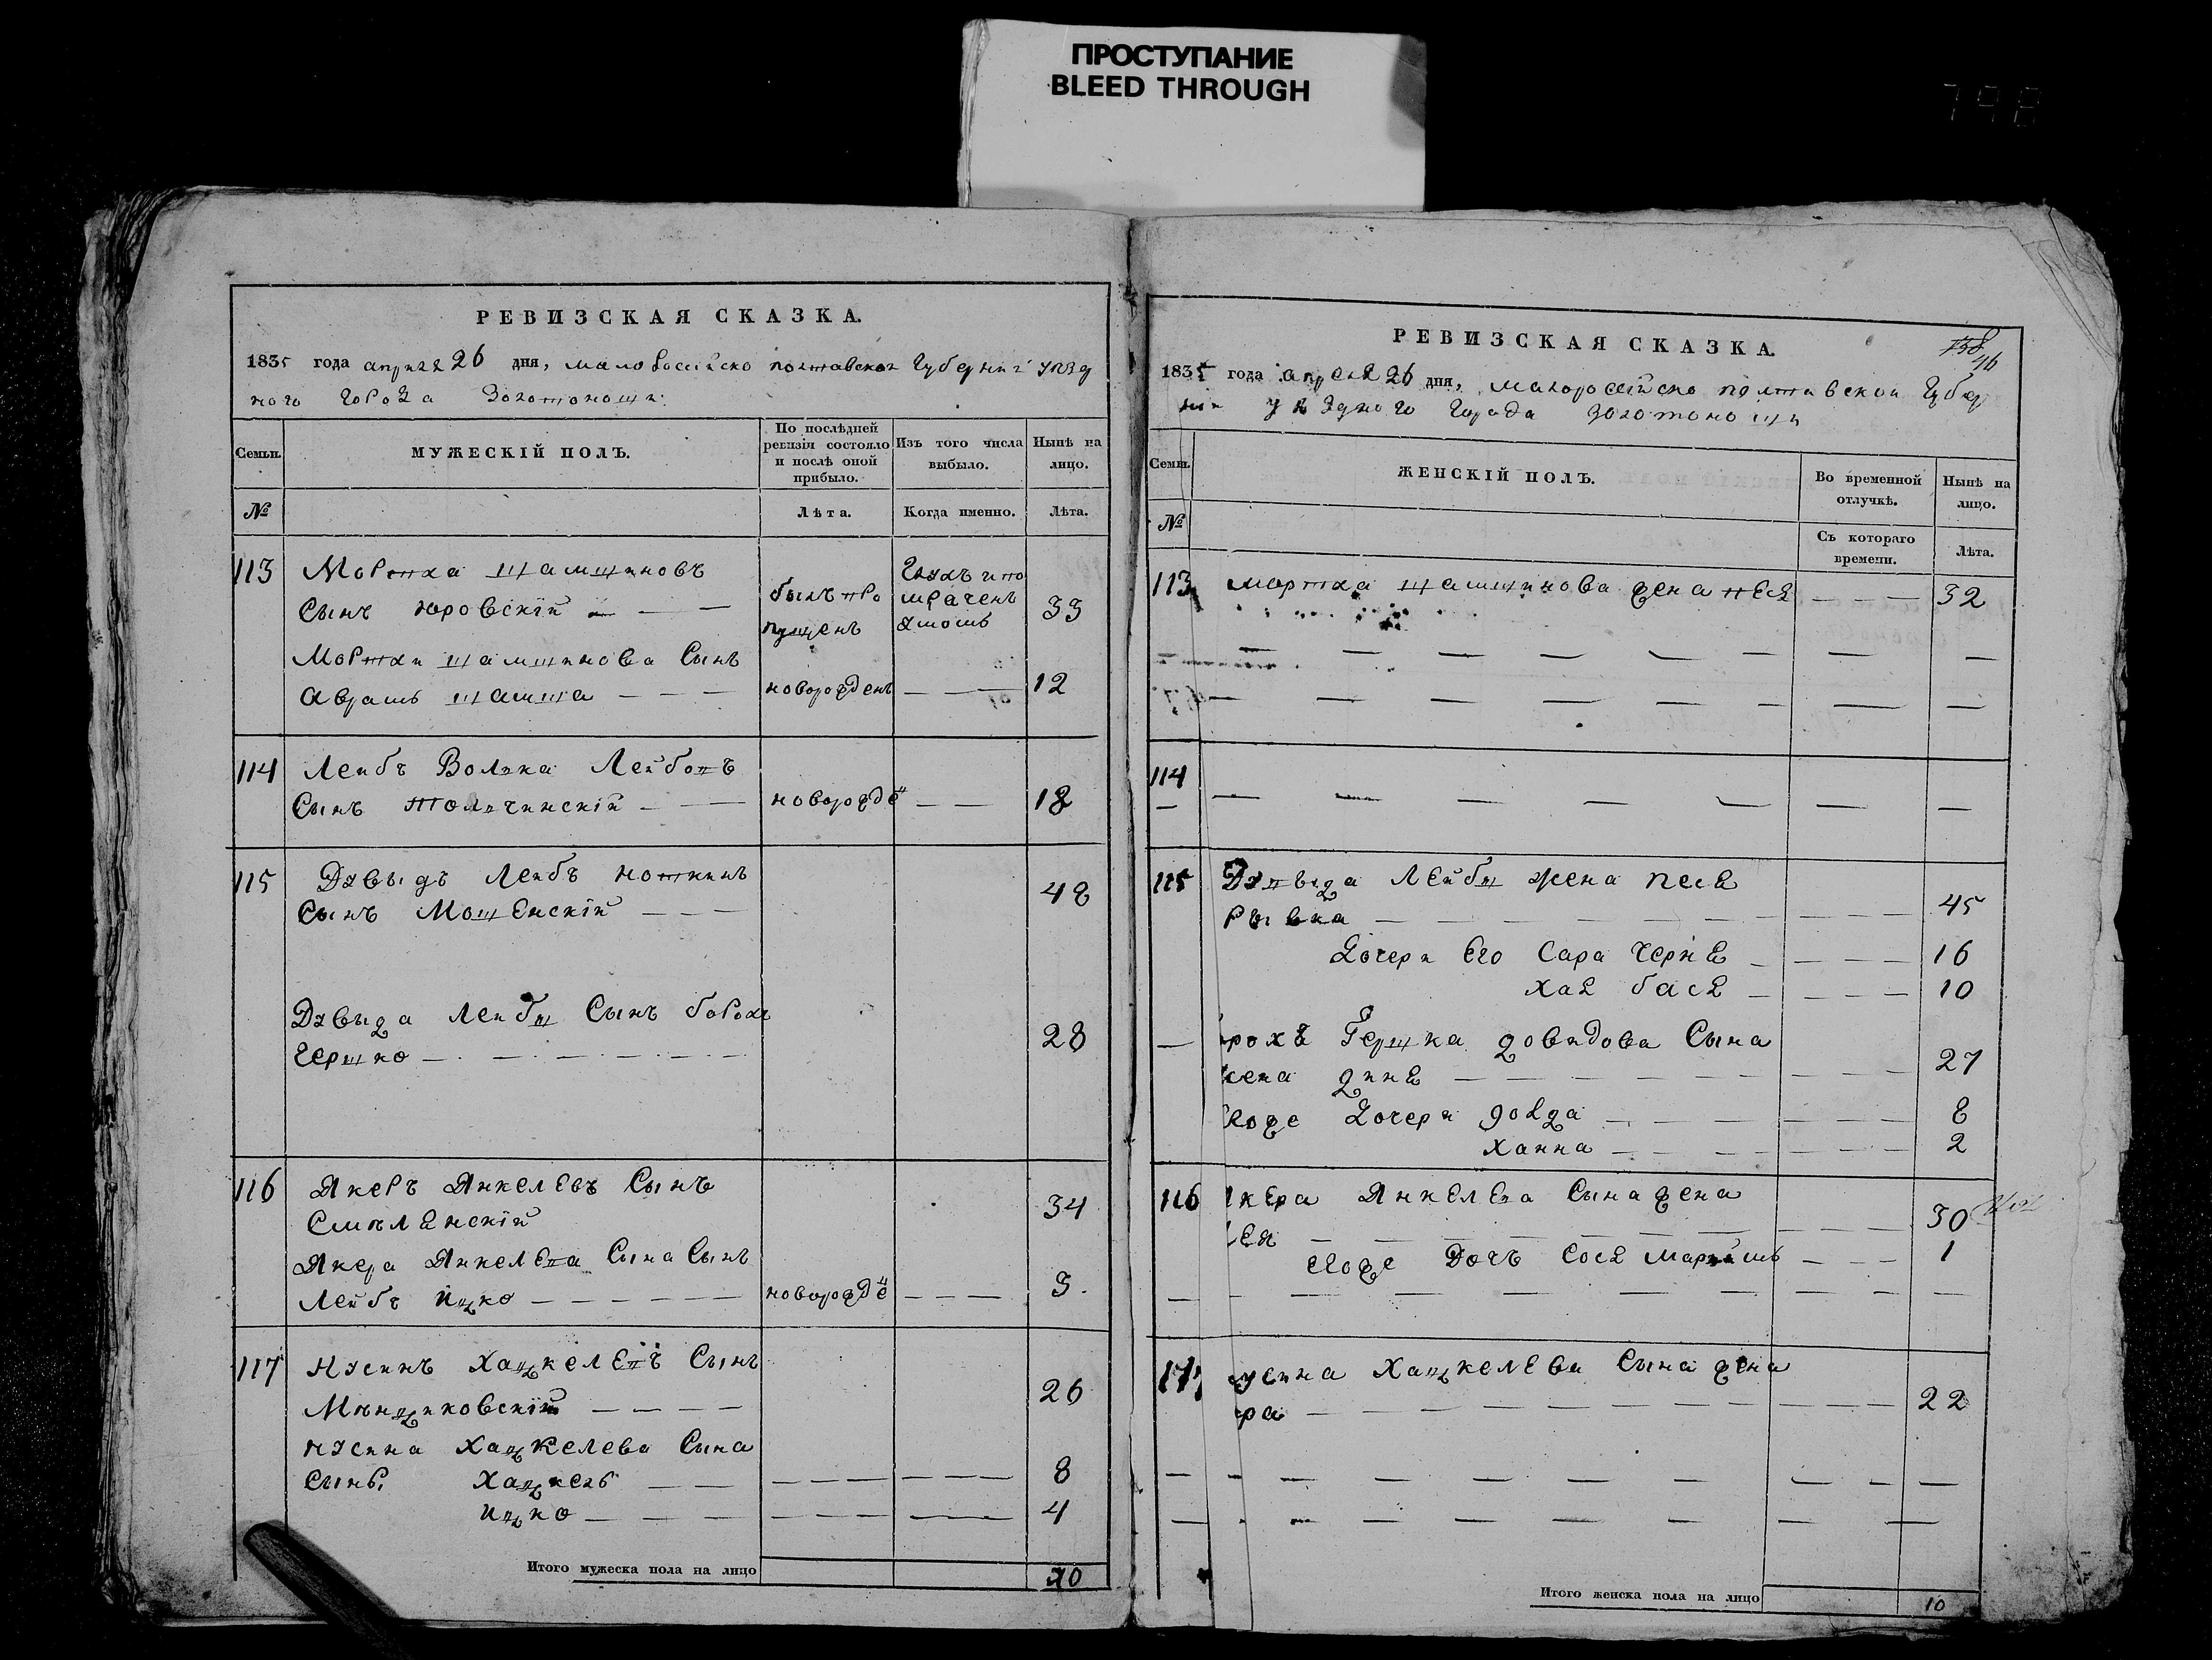 ПРОСТУПАНИЕ
BLEED THROUGH
798
РЕВИЗСКАЯ СКАЗКА.
1835 года апреля 26 дня, малороссийско полтавской губернии уезд
ного города Золотоноши.
Семьи. МУЖЕСКІЙ ПОЛЪ. По послѣдней ревизіи состояло и послѣ оной прибыло. Изъ того числа выбыло. Нынѣ на лицо.
№ Лѣта. Когда именно. Лѣта.
113 Мортха Шамшиновъ
Сынъ юровскій былъ пропущенъ 33
Мортхи Шамшинова Сынъ
Аврамъ Шамша новорожденъ 12
114 Лейбъ Волька Лейбовъ
Сынъ Толпчинскій новорожде 18
115 Давыдъ Лейбъ Ноткинъ 48
Сынъ Мошенскій
Давыда Лейбы Сынъ борохъ
Гершко 28
116 Якеръ Янкелевъ Сынъ 34
Смелянскій
Якера Янкелева Сына Сынъ
Лейбъ Ицко новорожде 3
117 Нусинъ Хацкелевъ Сынъ
Мѣнджиковскій 26
Нусина Хацкелева Сына
Сынъ. Хацкель 8
Ицко 4
Итого мужеска пола на лицо 10
РЕВИЗСКАЯ СКАЗКА.
46
1835 года апреля 26 дня, малороссійско полтавской губер
ніи уѣзднаго города Золотоноши
Семьи. ЖЕНСКІЙ ПОЛЪ. Во временной отлучкѣ. Нынѣ на лицо.
№ Съ котораго времени. Лѣта.
113 Мортха Шамшинова жена Песя 32
114
115 Давыда Лейбы жена песя
Рывка 45
Дочери Его Сара Черня 16
Хая бася 10
рохъ Гершка довидова Сына 27
жена диня
Егоже Дочери 8
Ханна 2
116 Якера Янкелева Сына жена 30
Лея
Егоже Дочь Сося 1
117 Нусина Хацкелева Сына жена
ра 22
Итого женска пола на лицо 10